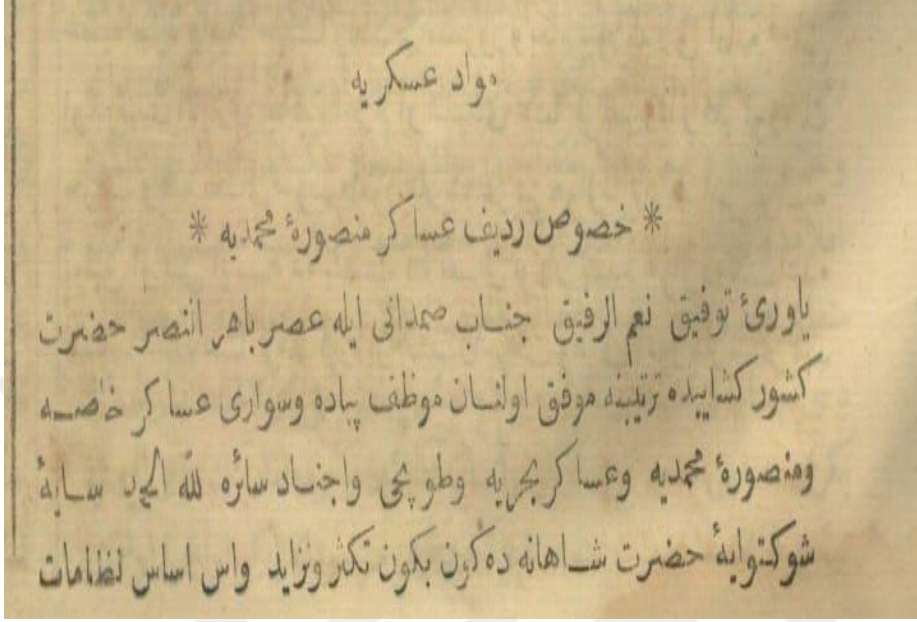 مواد عسكریه
* خصوص ردیف عساكر منصورهٔ محمدیه *
یاورئ توفیق نعم الرفیق جناب صمدانی ایله عصر باهر النصر حضرت
كشور كشاییده ترتیبنه موفق اولنان موظف پیاده وسواری عساكر خاصه
ومنصورهٔ محمدیه وعساكر بحریه وطوپجی واجناد سائره لله الحمد سایهٔ
شوكتوایهٔ حضرت شاهانه ده كون بكون تكثر وتزاید واس اساس نظامات